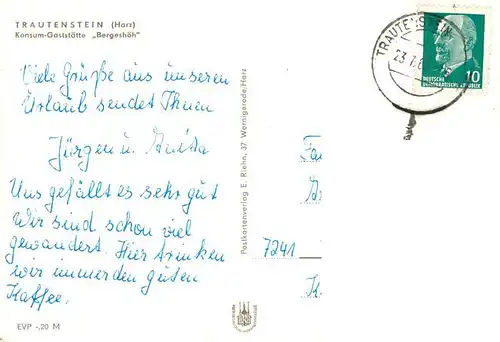 TRAUTENSTEIN (Harz)
Konsum-Gaststätte „Bergeshöh"
Viele Grüße aus unseren
Urlaub sendet Ihnen
Jürgen u. Anita
Uns gefällt es sehr gut
Wir sind schon viel
gewandert. Hier trinken
wir immer den guten
Kaffee.
EVP -,20 M
Postkartenverlag E. Riehn, 37 Wernigerode/Harz
TRAUTENSTEIN
23.7.
DEUTSCHE
DEMOKRATISCHE REPUBLIK
10
Fa
7241
K